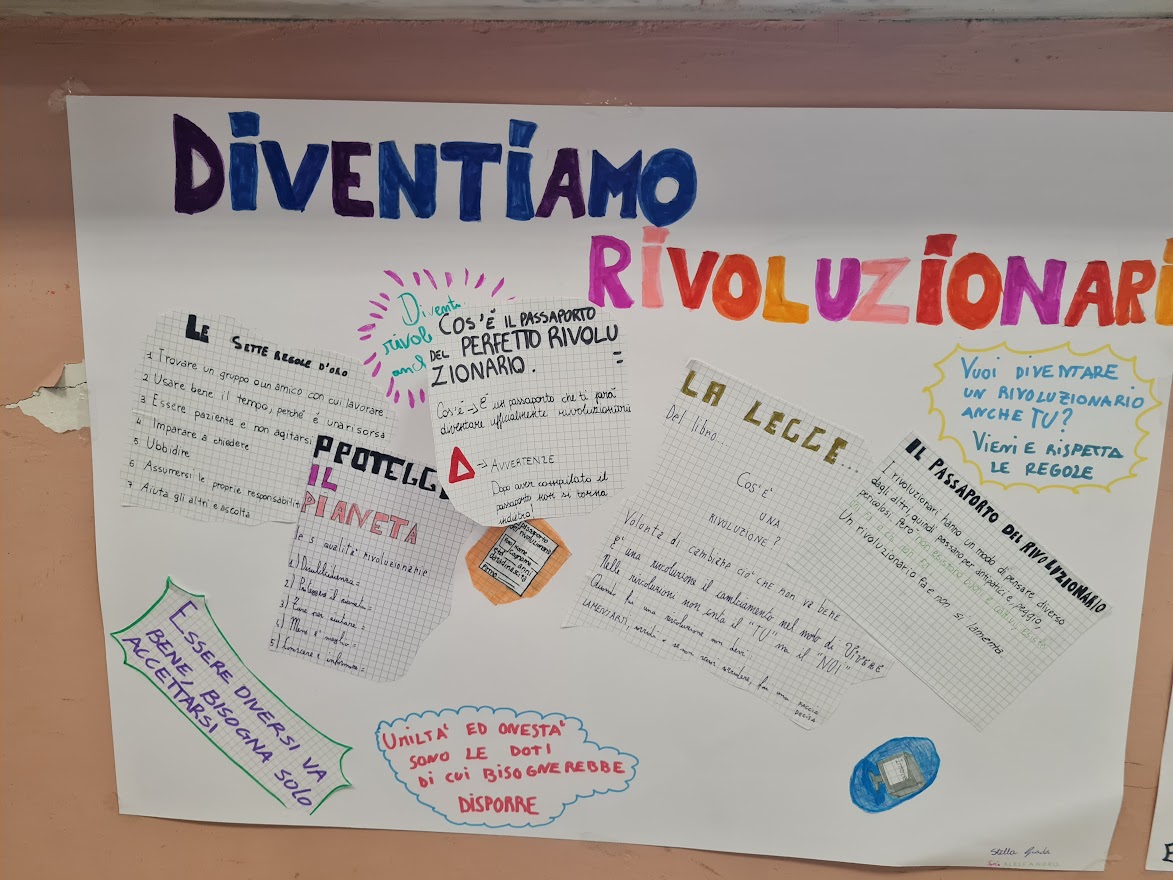 DIVENTIAMO
RIVOLUZIONARI
LE SETTE REGOLE D'ORO
1 Trovare un gruppo o un amico con cui lavorare
2 Usare bene il tempo, perché é una risorsa
3 Essere paziente e non agitarsi
4 Imparare a chiedere
5 Ubbidire
6 Assumersi le proprie responsabilit
7 Aiuta gli altri e ascolta
Diventa
rivol
anch
COS'É IL PASSAPORTO
DEL PERFETTO RIVOLU
ZIONARIO.
Cos'é → É un passaporto che ti farà
diventare ufficialmente rivoluzionario
→ AVVERTENZE
Dopo aver compilato il
passaporto non si torna
indietro!
PROTEGGI
IL
PIANETA
le 5 qualità rivoluzionarie
1) Disubbidienza =
2)
3)
4) Meno é meglio =
5) Conoscere e informare =
passaporto
del rivoluzionario
nome
cognome
anni
LA LEGGE...
Del libro
COS'É
UNA
RIVOLUZIONE?
Volontà di cambiare ciò CHE NON VA BENE
É una rivoluzione il cambiamento nel modo di VIVERE
Nelle rivoluzioni non conta il "TU" ma il "NOI"
Quando fai una rivoluzione non devi
LAMENTARTI, sorridi e se non vuoi sorridere, fai una FACCIA
DECISA
VUOI DIVENTARE
UN RIVOLUZIONARIO
ANCHE TU?
VIENI E RISPETTA
LE REGOLE
IL PASSAPORTO DEL RIVOLUZIONARIO
I rivoluzionari hanno un modo di pensare diverso
dagli altri, quindi passano per antipatici e, peggio,
pericolosi. Però non esistono buoni e cattivi,
Un rivoluzionario fa e non si lamenta
ESSERE DIVERSI VA
BENE, BISOGNA SOLO
ACCETTARSI
UMILTA' ED ONESTA'
SONO LE DOTI
DI CUI BISOGNEREBBE
DISPORRE
Stella Giada